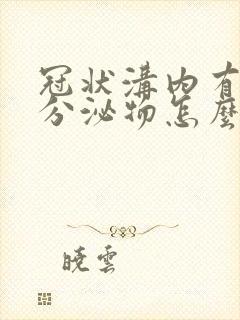 冠狀溝內有
分泌物怎麼
曉雲